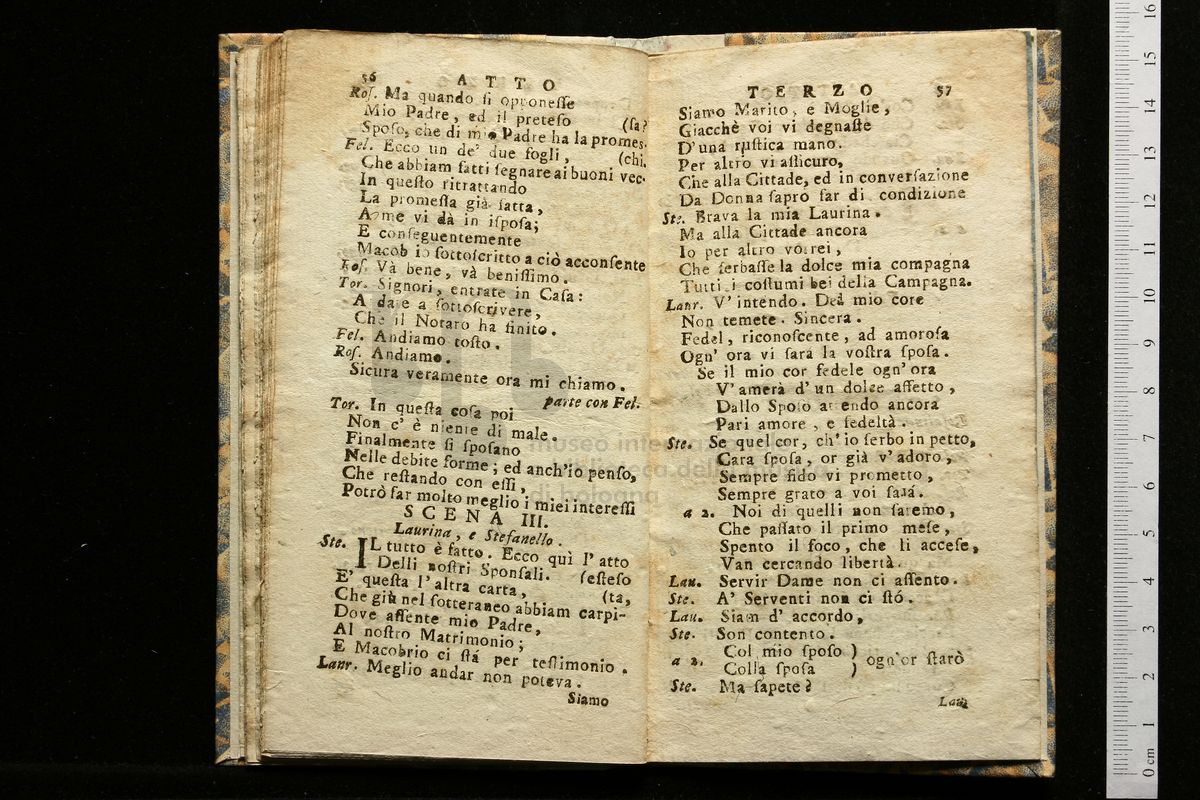 56 ATTO
Roſ. Ma quando ſi opponeſſe
Mio Padre, ed il preteſo (ſa?
Spoſo, che di mio Padre ha la promeſ-
Fel. Ecco un de' due fogli, (chi.
Che abbiam fatti ſegnare ai buoni vec-
In queſto ritrattando
La promeſſa già fatta,
A me vi dà in iſpoſa;
E conſeguentemente
Macob io ſottoſcritto a ciò acconſente
Roſ. Và bene, và beniſſimo.
Tor. Signori, entrate in Caſa:
A date a ſottoſcrivere,
Che il Notaro ha finito.
Fel. Andiamo toſto.
Roſ. Andiamo.
Sicura veramente ora mi chiamo.
parte con Fel.
Tor. In queſta coſa poi
Non c' è niente di male.
Finalmente ſi ſpoſano
Nelle debite forme; ed anch'io penſo,
Che reſtando con eſſi,
Potrò far molto meglio i miei intereſſi
SCENA III.
Laurina, e Stefanello.
Ste. IL tutto è fatto. Ecco quì l' atto
Delli noſtri Sponſali. (eſteſo
E' queſta l' altra carta, (ta,
Che già nel ſotteraneo abbiam carpi-
Dove aſſente mio Padre,
Al noſtro Matrimonio;
E Macobrio ci ſtá per teſtimonio.
Laur. Meglio andar non poteva.
Siamo
TERZO 57
Siamo Marito, e Moglie,
Giacchè voi vi degnaſte
D'una ruſtica mano.
Per altro vi aſſicuro,
Che alla Cittade, ed in converſazione
Da Donna ſaprò far di condizione
Ste. Brava la mia Laurina.
Ma alla Cittade ancora
Io per altro vorrei,
Che ſerbaſſe la dolce mia compagna
Tutti i coſtumi bei della Campagna.
Laur. V' intendo. Del mio core
Non temete. Sincera.
Fedel, riconoſcente, ad amoroſa
Ogn' ora vi ſarà la voſtra ſpoſa.
Se il mio cor fedele ogn' ora
V' amerà d' un dolce affetto,
Dallo Spoſo attendo ancora
Pari amore, e fedeltà.
Ste. Se quel cor, ch' io ſerbo in petto,
Cara ſpoſa, or già v' adoro,
Sempre fido vi prometto,
Sempre grato a voi ſarà.
a 2. Noi di quelli non ſaremo,
Che paſſato il primo meſe,
Spento il foco, che li acceſe,
Van cercando libertà.
Lau. Servir Dame non ci aſſento.
Ste. A' Serventi non ci ſtó.
Lau. Siam d' accordo,
Ste. Son contento.
a 2. Col mio ſpoſo ) ogn'or ſtarò
Colla ſpoſa )
Ste. Ma ſapete?
Lau
museo internazionale
e biblioteca della musica
di bologna
0 cm 1 2 3 4 5 6 7 8 9 10 11 12 13 14 15 16